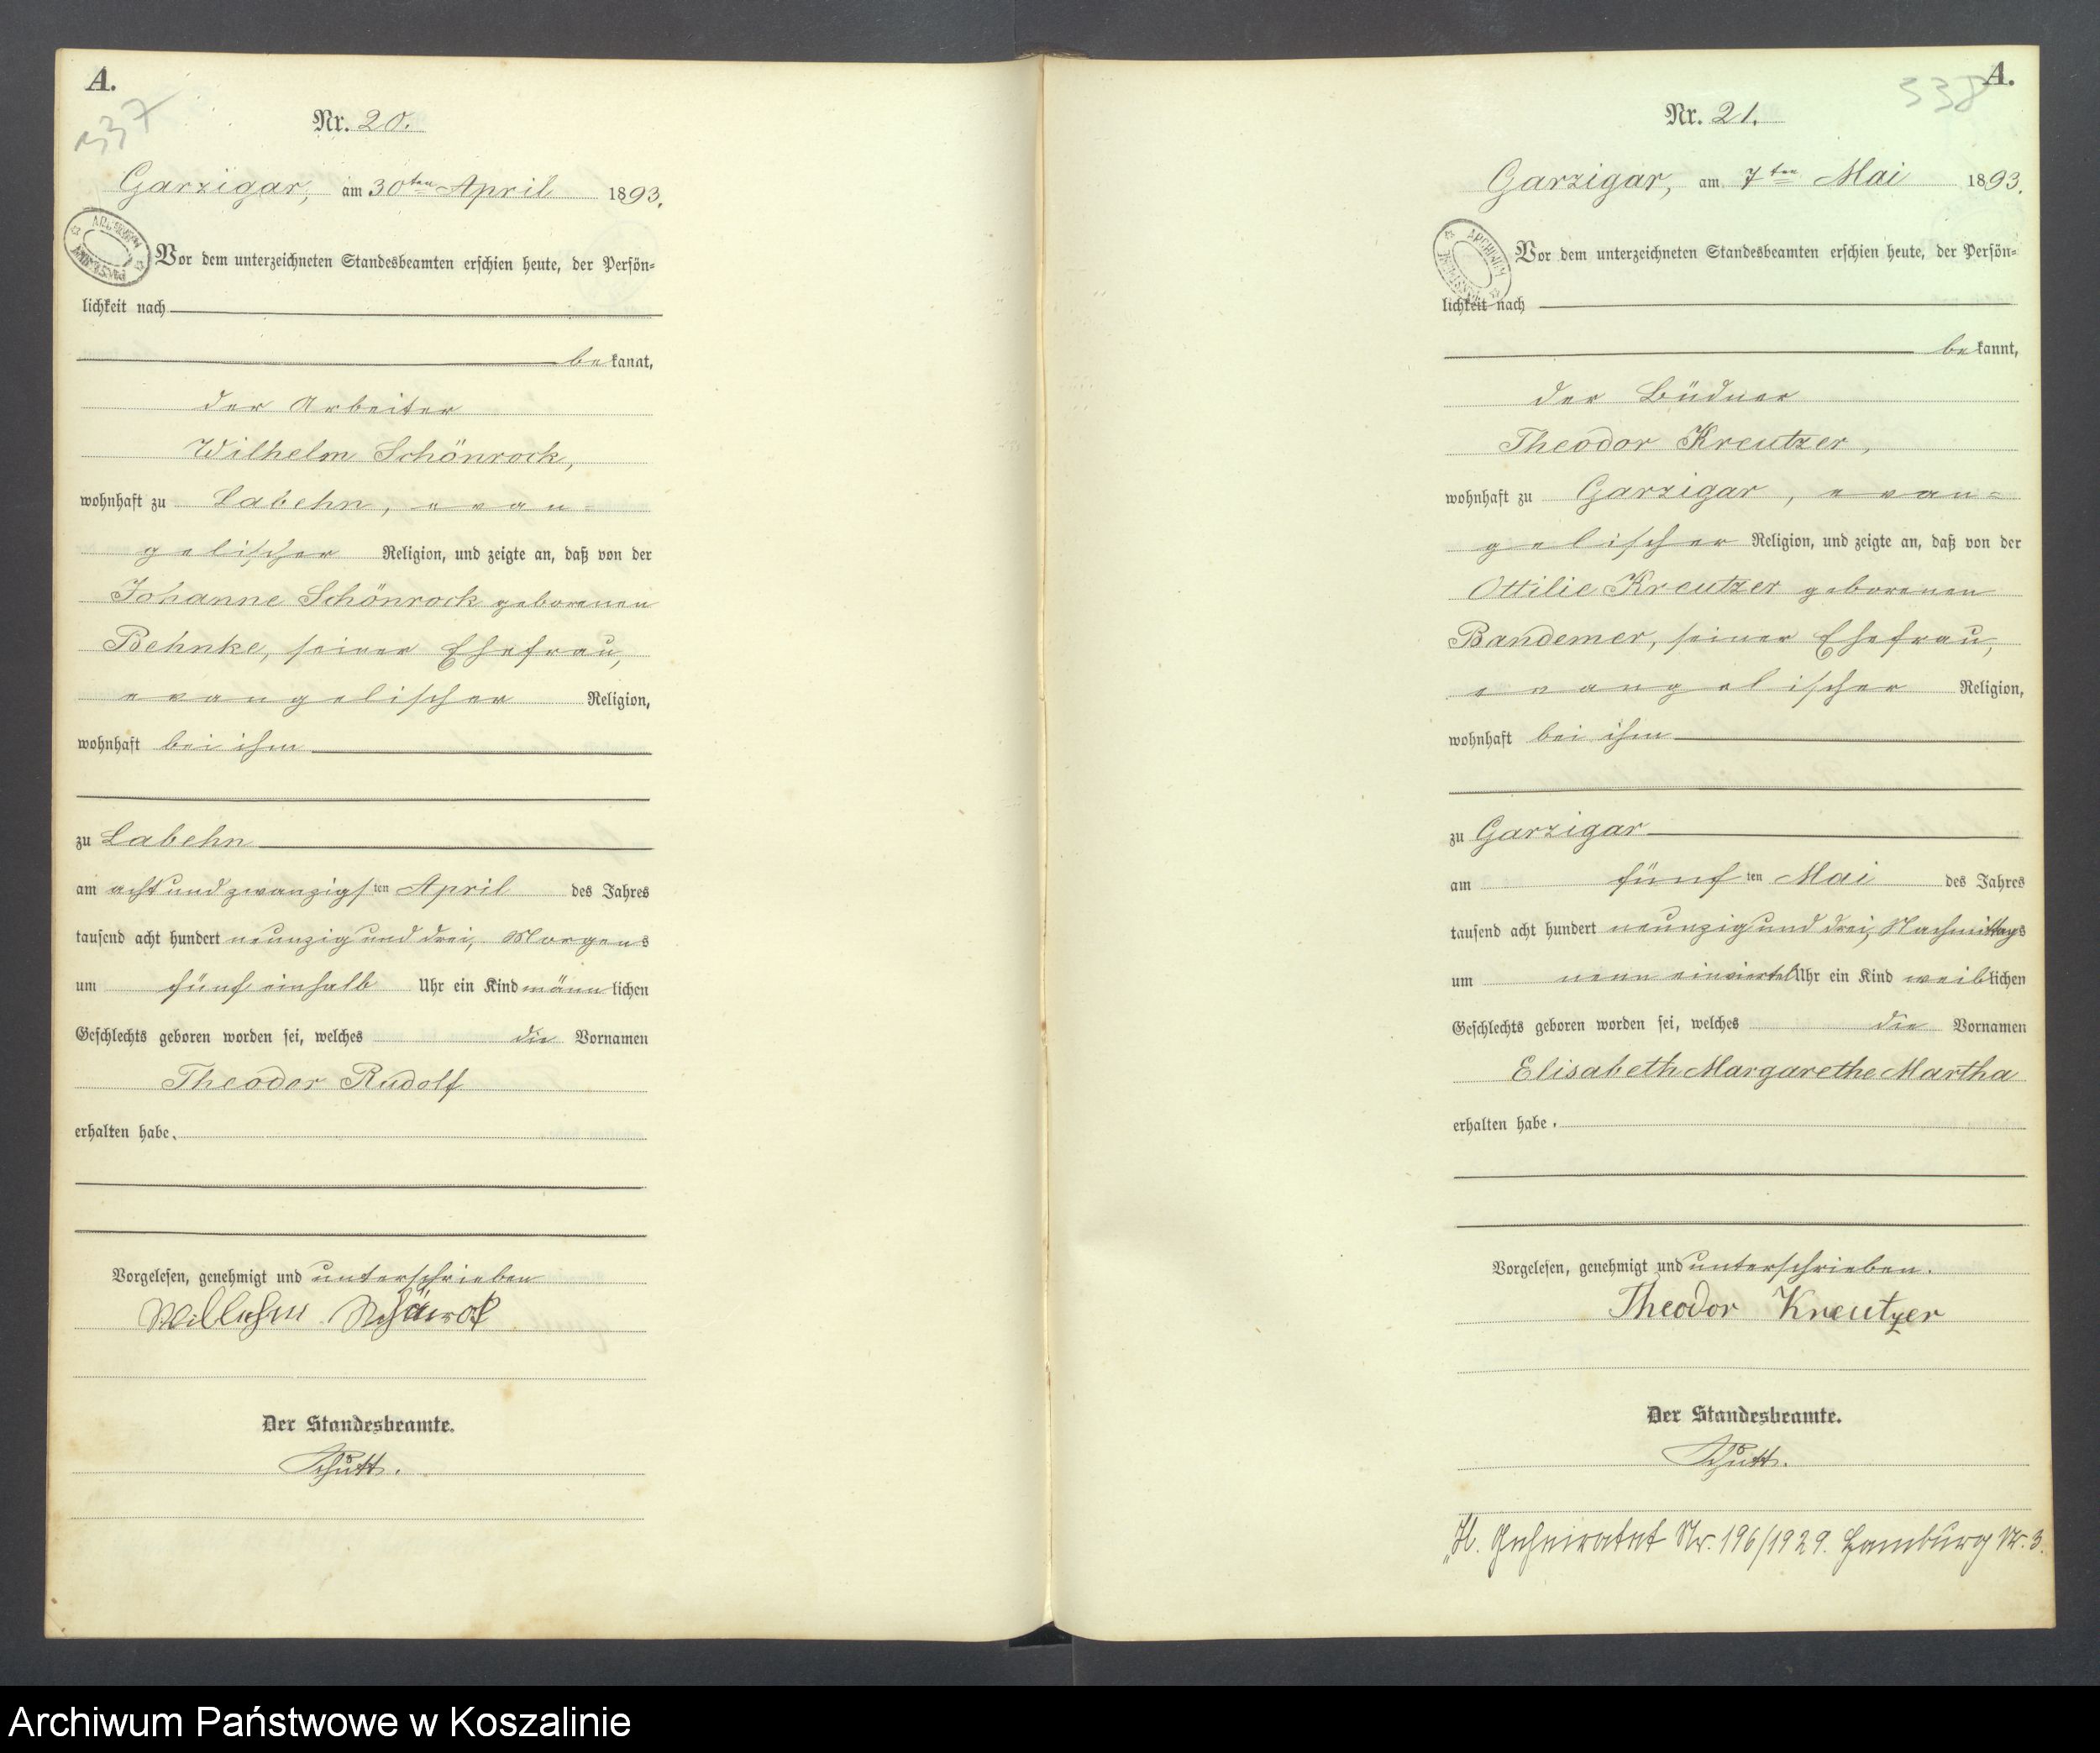 A.
337
Nr. 20.
Garzigar, am 30ten April 1893.
Vor dem unterzeichneten Standesbeamten erschien heute, der Persön=
lichkeit nach
bekannt,
der Arbeiter
Wilhelm Schönrock,
wohnhaft zu Labehn, evan=
gelischer Religion, und zeigte an, daß von der
Johanne Schönrock geborenen
Behnke, seiner Ehefrau,
evangelischer Religion,
wohnhaft bei ihm
zu Labehn
am acht und zwanzigsten April des Jahres
tausend acht hundert neunzig und drei, Morgens
um fünf einhalb Uhr ein Kind männlichen
Geschlechts geboren worden sei, welches die Vornamen
Theodor Rudolf
erhalten habe.
Vorgelesen, genehmigt und unterschrieben
Der Standesbeamte.
Schütt.
A.
338
Nr. 21.
Garzigar, am 7ten Mai 1893.
Vor dem unterzeichneten Standesbeamten erschien heute, der Persön=
lichkeit nach
bekannt,
der Büdner
Theodor Kreutzer,
wohnhaft zu Garzigar, evan=
gelischer Religion, und zeigte an, daß von der
Ottilie Kreutzer geborenen
Bandemer, seiner Ehefrau,
evangelischer Religion,
wohnhaft bei ihm
zu Garzigar
am fünften Mai des Jahres
tausend acht hundert neunzig und drei, Nachmittags
um neun einviertel Uhr ein Kind weiblichen
Geschlechts geboren worden sei, welches die Vornamen
Elisabeth Margarethe Martha
erhalten habe.
Vorgelesen, genehmigt und unterschrieben.
Theodor Kreutzer
Der Standesbeamte.
Schütt.
Geheiratet Nr. 196/1929. Hamburg Nr. 3.
Archiwum Państwowe w Koszalinie